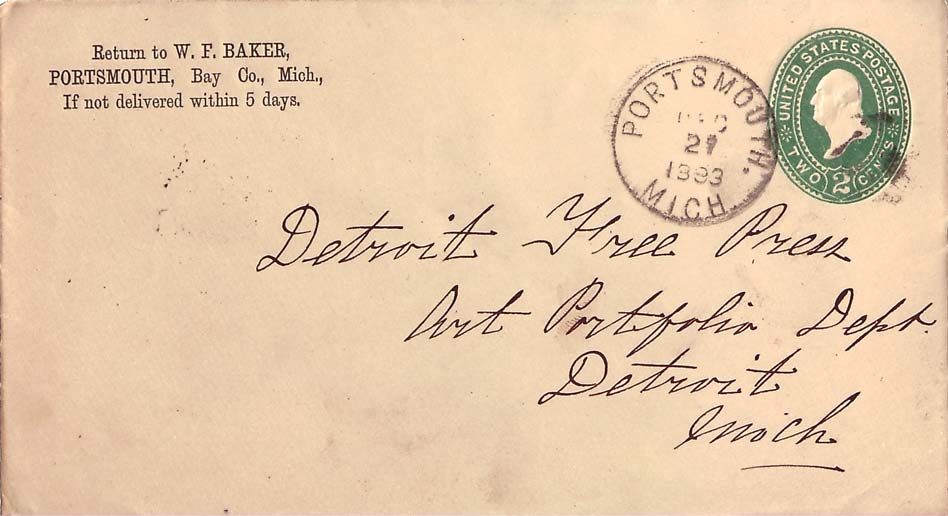 Return to W. F. BAKER,
PORTSMOUTH, Bay Co., Mich.,
If not delivered within 5 days.
PORTSMOUTH.
27
1893
MICH.
UNITED STATES POSTAGE
TWO 2 CENTS
Detroit Free Press
Art Portfolio Dept.
Detroit
Mich